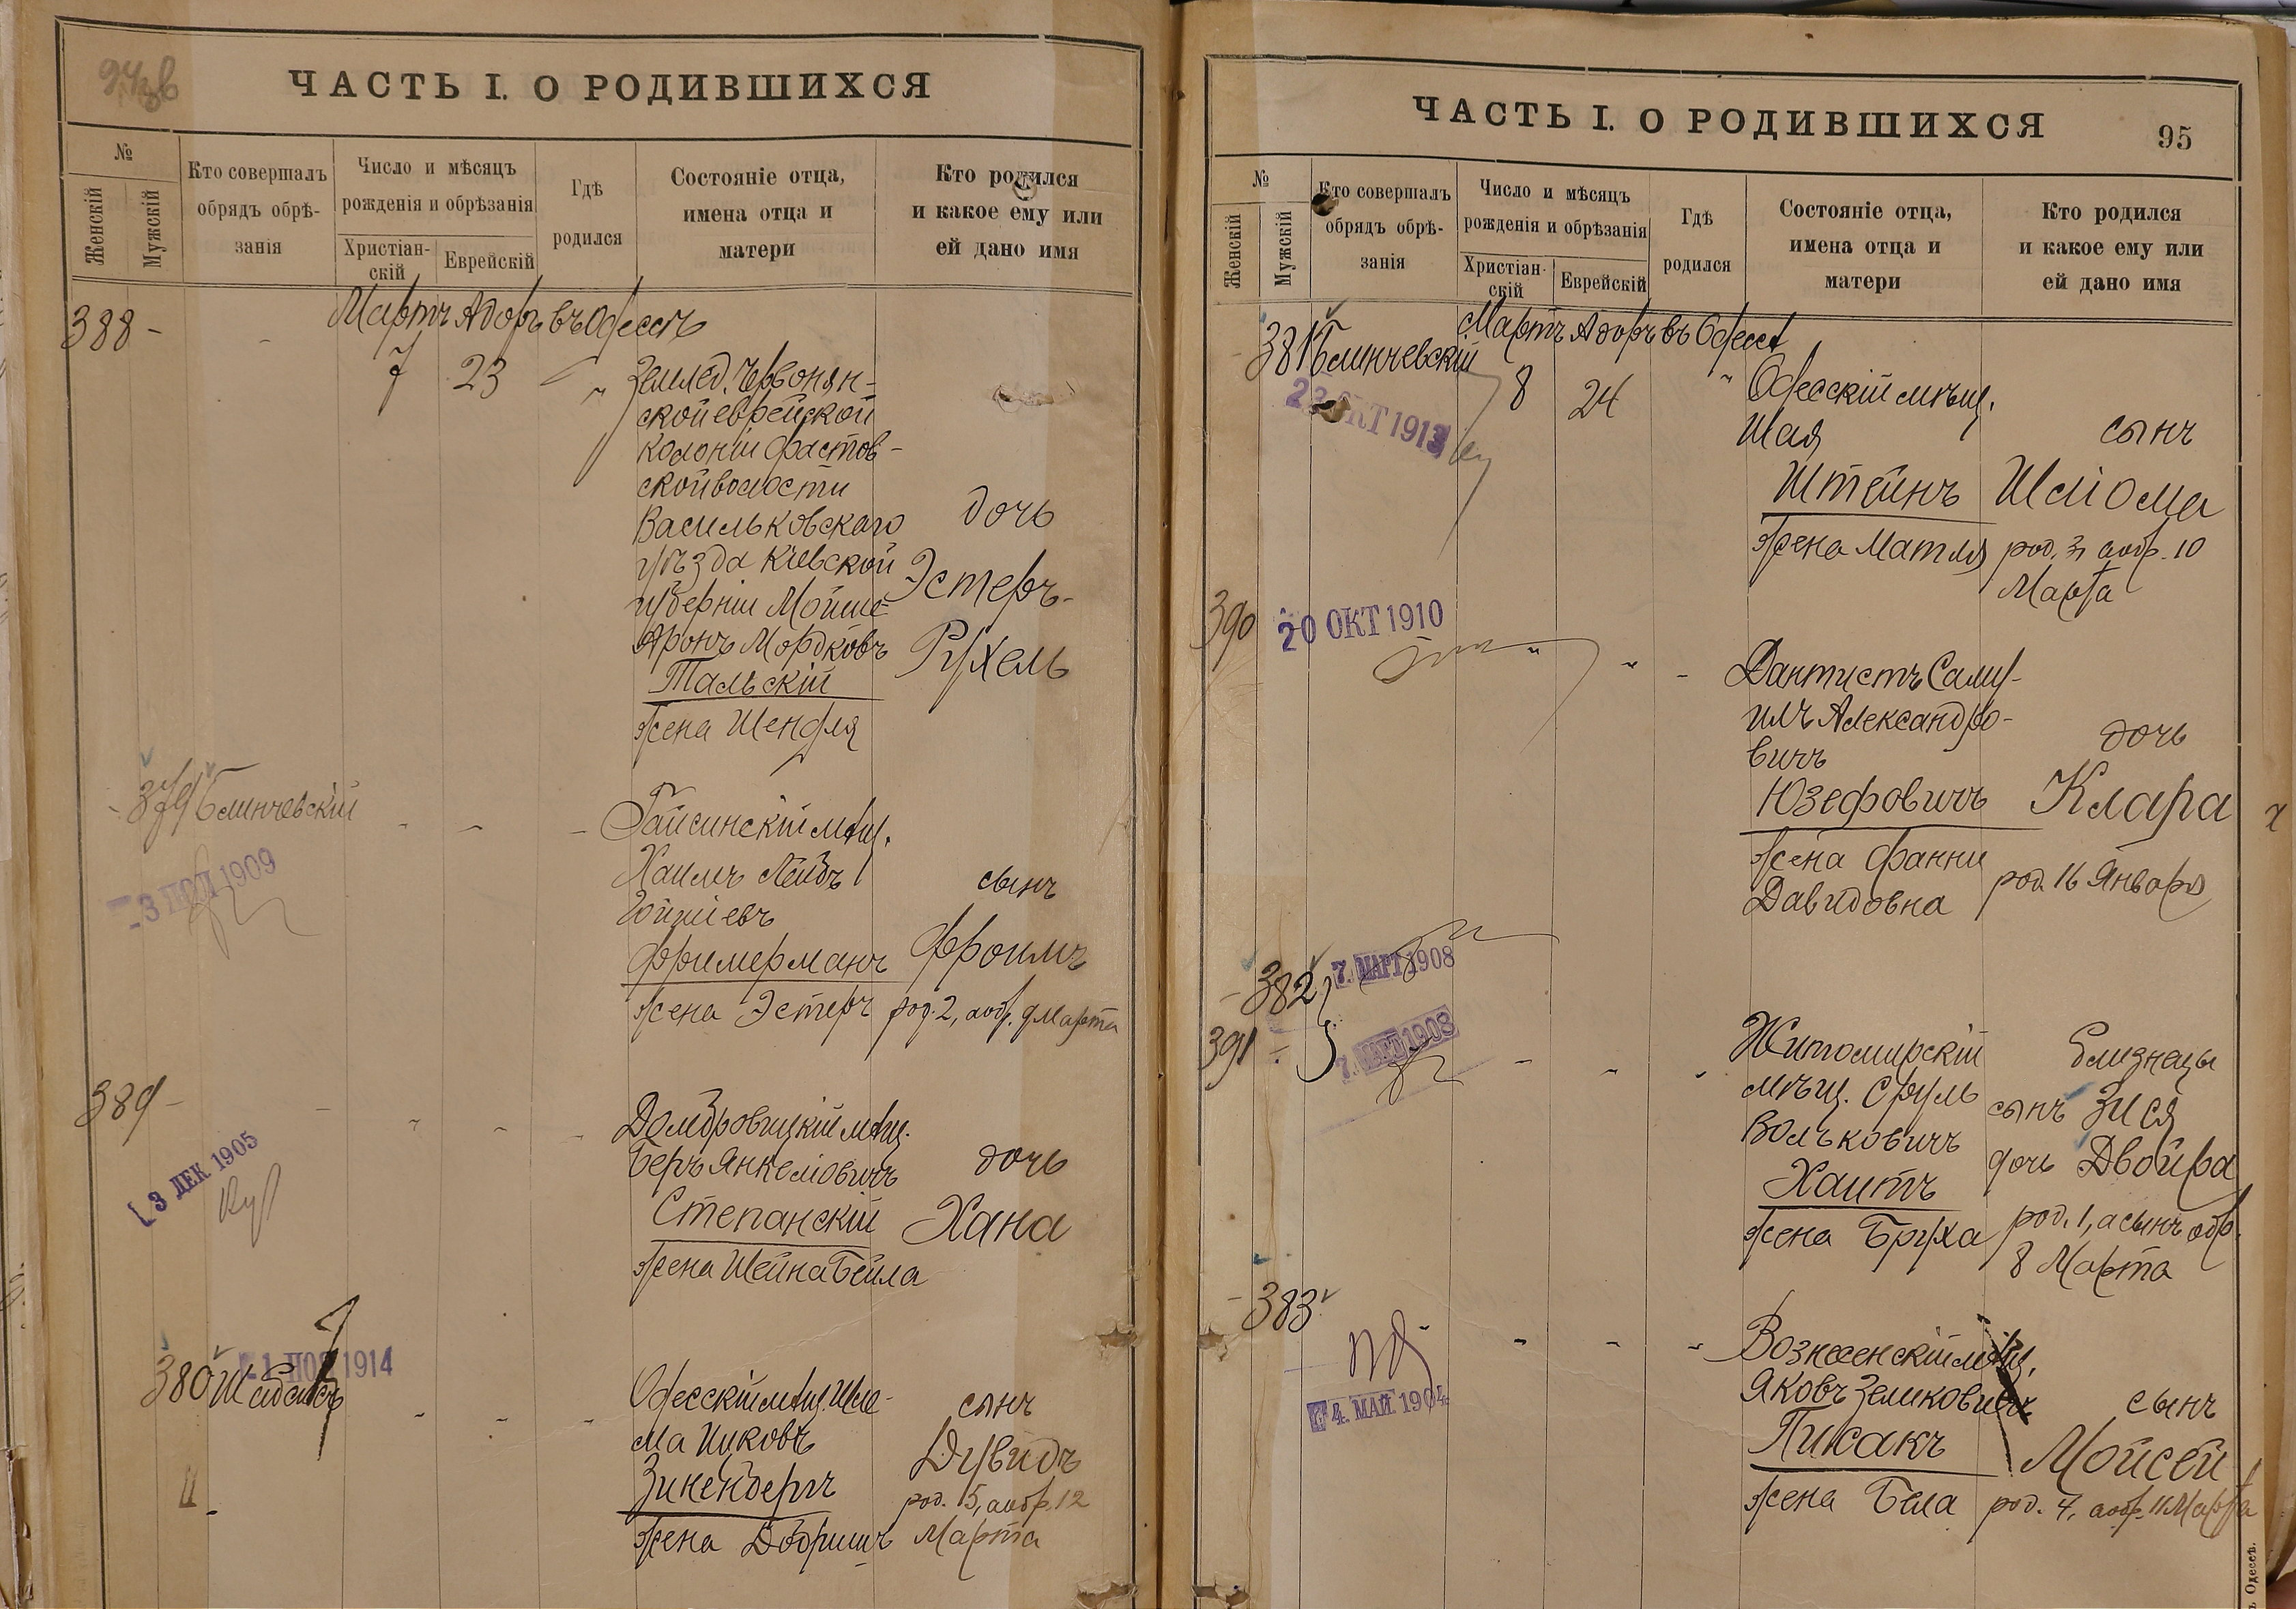 ЧАСТЬ I. О РОДИВШИХСЯ
№
Женскій
Мужскій
Кто совершалъ
обрядъ обрѣ-
занія
Число и мѣсяцъ
рожденія и обрѣзанія
Христіан-
скій
Еврейскій
Гдѣ
родился
Состояніе отца,
имена отца и
матери
Кто родился
и какое ему или
ей дано имя
388 -
Мартъ Адоръ въ Одессѣ
7 23 "
Землед. Червонян-
ской еврейской
колоніи Фастов-
ской волости
Васильковскаго
уѣзда Кіевской
губерніи Мойше
Аронъ Мордковъ
Тальскій
жена Шендля
дочь
Эстеръ-
Рухель
379 Блинчевскій
3 1909
Гайсинскій мѣщ.
Хаимъ Лейбъ
Фримерманъ
жена Эстеръ
сынъ
Фроимъ
род. 2, а обр. 9 Марта
389 -
3 ДЕК 1905
Домбровицкій мѣщ.
Беръ Янкелiовичъ
Степанскій
жена Шейна Бейла
дочь
Хана
380
1914
Одесскій мѣщ. Шле-
ма Ицковъ
Зиненбергъ
жена Добришъ
сынъ
Дувидъ
род. 5, а обр. 12
Марта
ЧАСТЬ I. О РОДИВШИХСЯ
95
№
Женскій
Мужскій
Кто совершалъ
обрядъ обрѣ-
занія
Число и мѣсяцъ
рожденія и обрѣзанія
Христіан-
скій
Еврейскій
Гдѣ
родился
Состояніе отца,
имена отца и
матери
Кто родился
и какое ему или
ей дано имя
381 Блинчевскій
Мартъ Адоръ въ Одессѣ
8 24 "
ОКТ 1913
Одесскій мѣщ.
Шая
Штейнъ
жена Матля
сынъ
Шлiома
род. 3, а обр. 10
Марта
390
20 ОКТ 1910
Дантистъ Саму-
илъ Александро-
вичъ
Юзефовичъ
жена Фанни
Давидовна
дочь
Клара
род. 16 Января
382
7. МАРТ 1908
391
7. МАРТ 1908
Житомирскій
мѣщ. Сруль
Вольковичъ
Хаитъ
жена Бруха
близнецы
сынъ Зися
дочь Двойра
род. 1, а сынъ обр.
8 Марта
383
4. МАЙ 1904
Вознесенскій мѣщ.
Яковъ Зеликовичъ
Пикакъ
жена Бела
сынъ
Мойсей
род. 4, а обр. 11 Марта
Одессѣ.